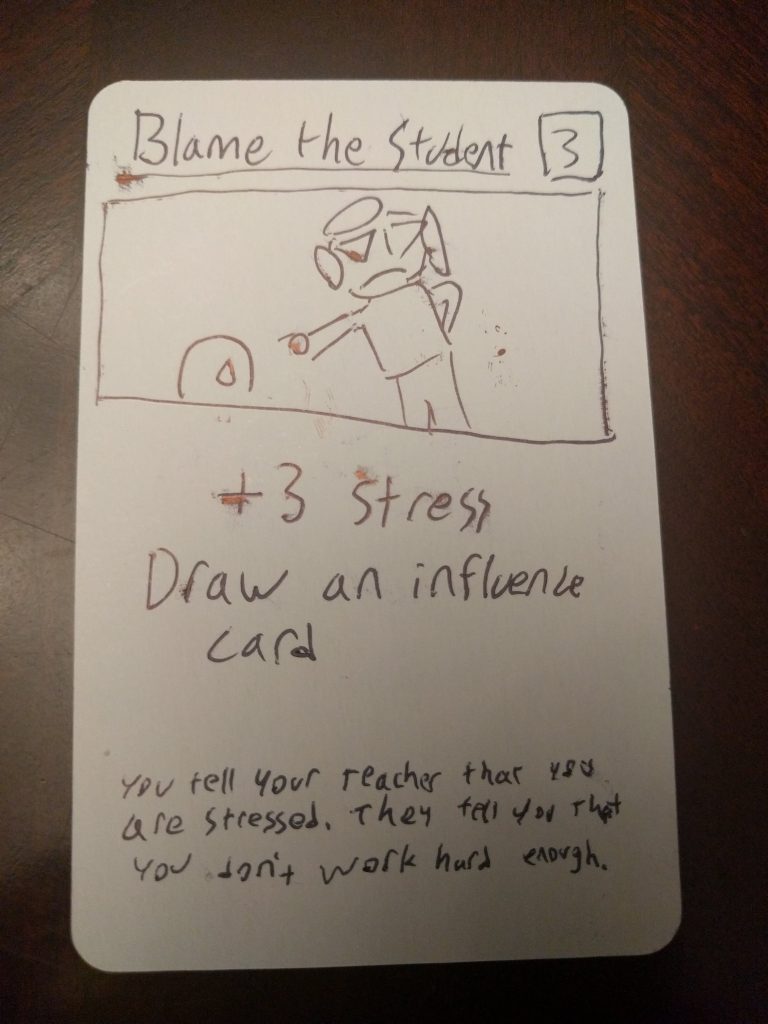 Blame the Student 3
+3 stress
Draw an influence
card
You tell your teacher that you
are stressed. They tell you that
you don't work hard enough.